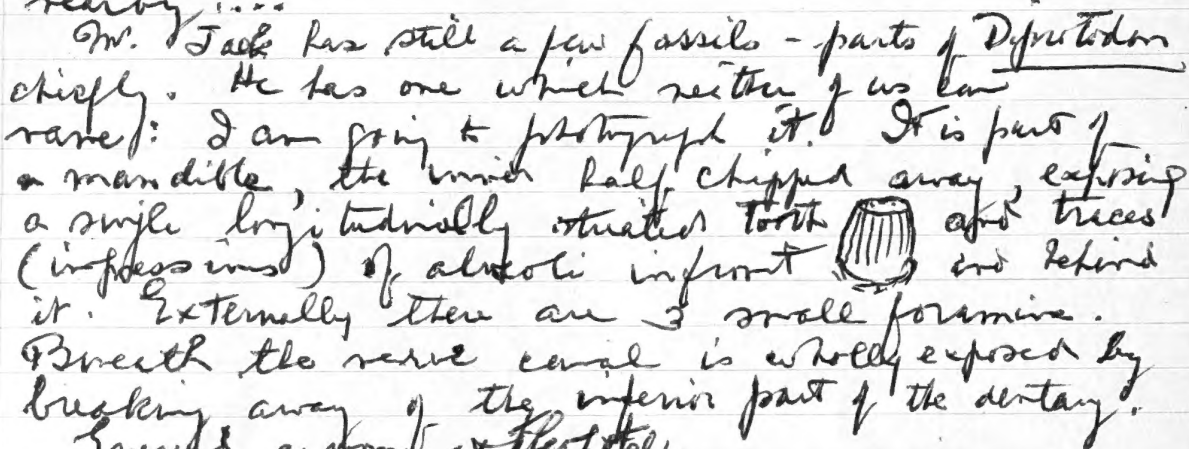 nearby ....
Mr. Jack has still a few fossils - parts of Diprotodon
chiefly. He has one which neither of us can
name: I am going to photograph it. It is part of
a mandible, the inner half chipped away, exposing
a single longitudinally striated tooth and traces
(impressions) of alveoli in front and behind
it. Externally there are 3 small foramina.
Beneath the nerve canal is wholly exposed by
breaking away of the inferior part of the dentary.